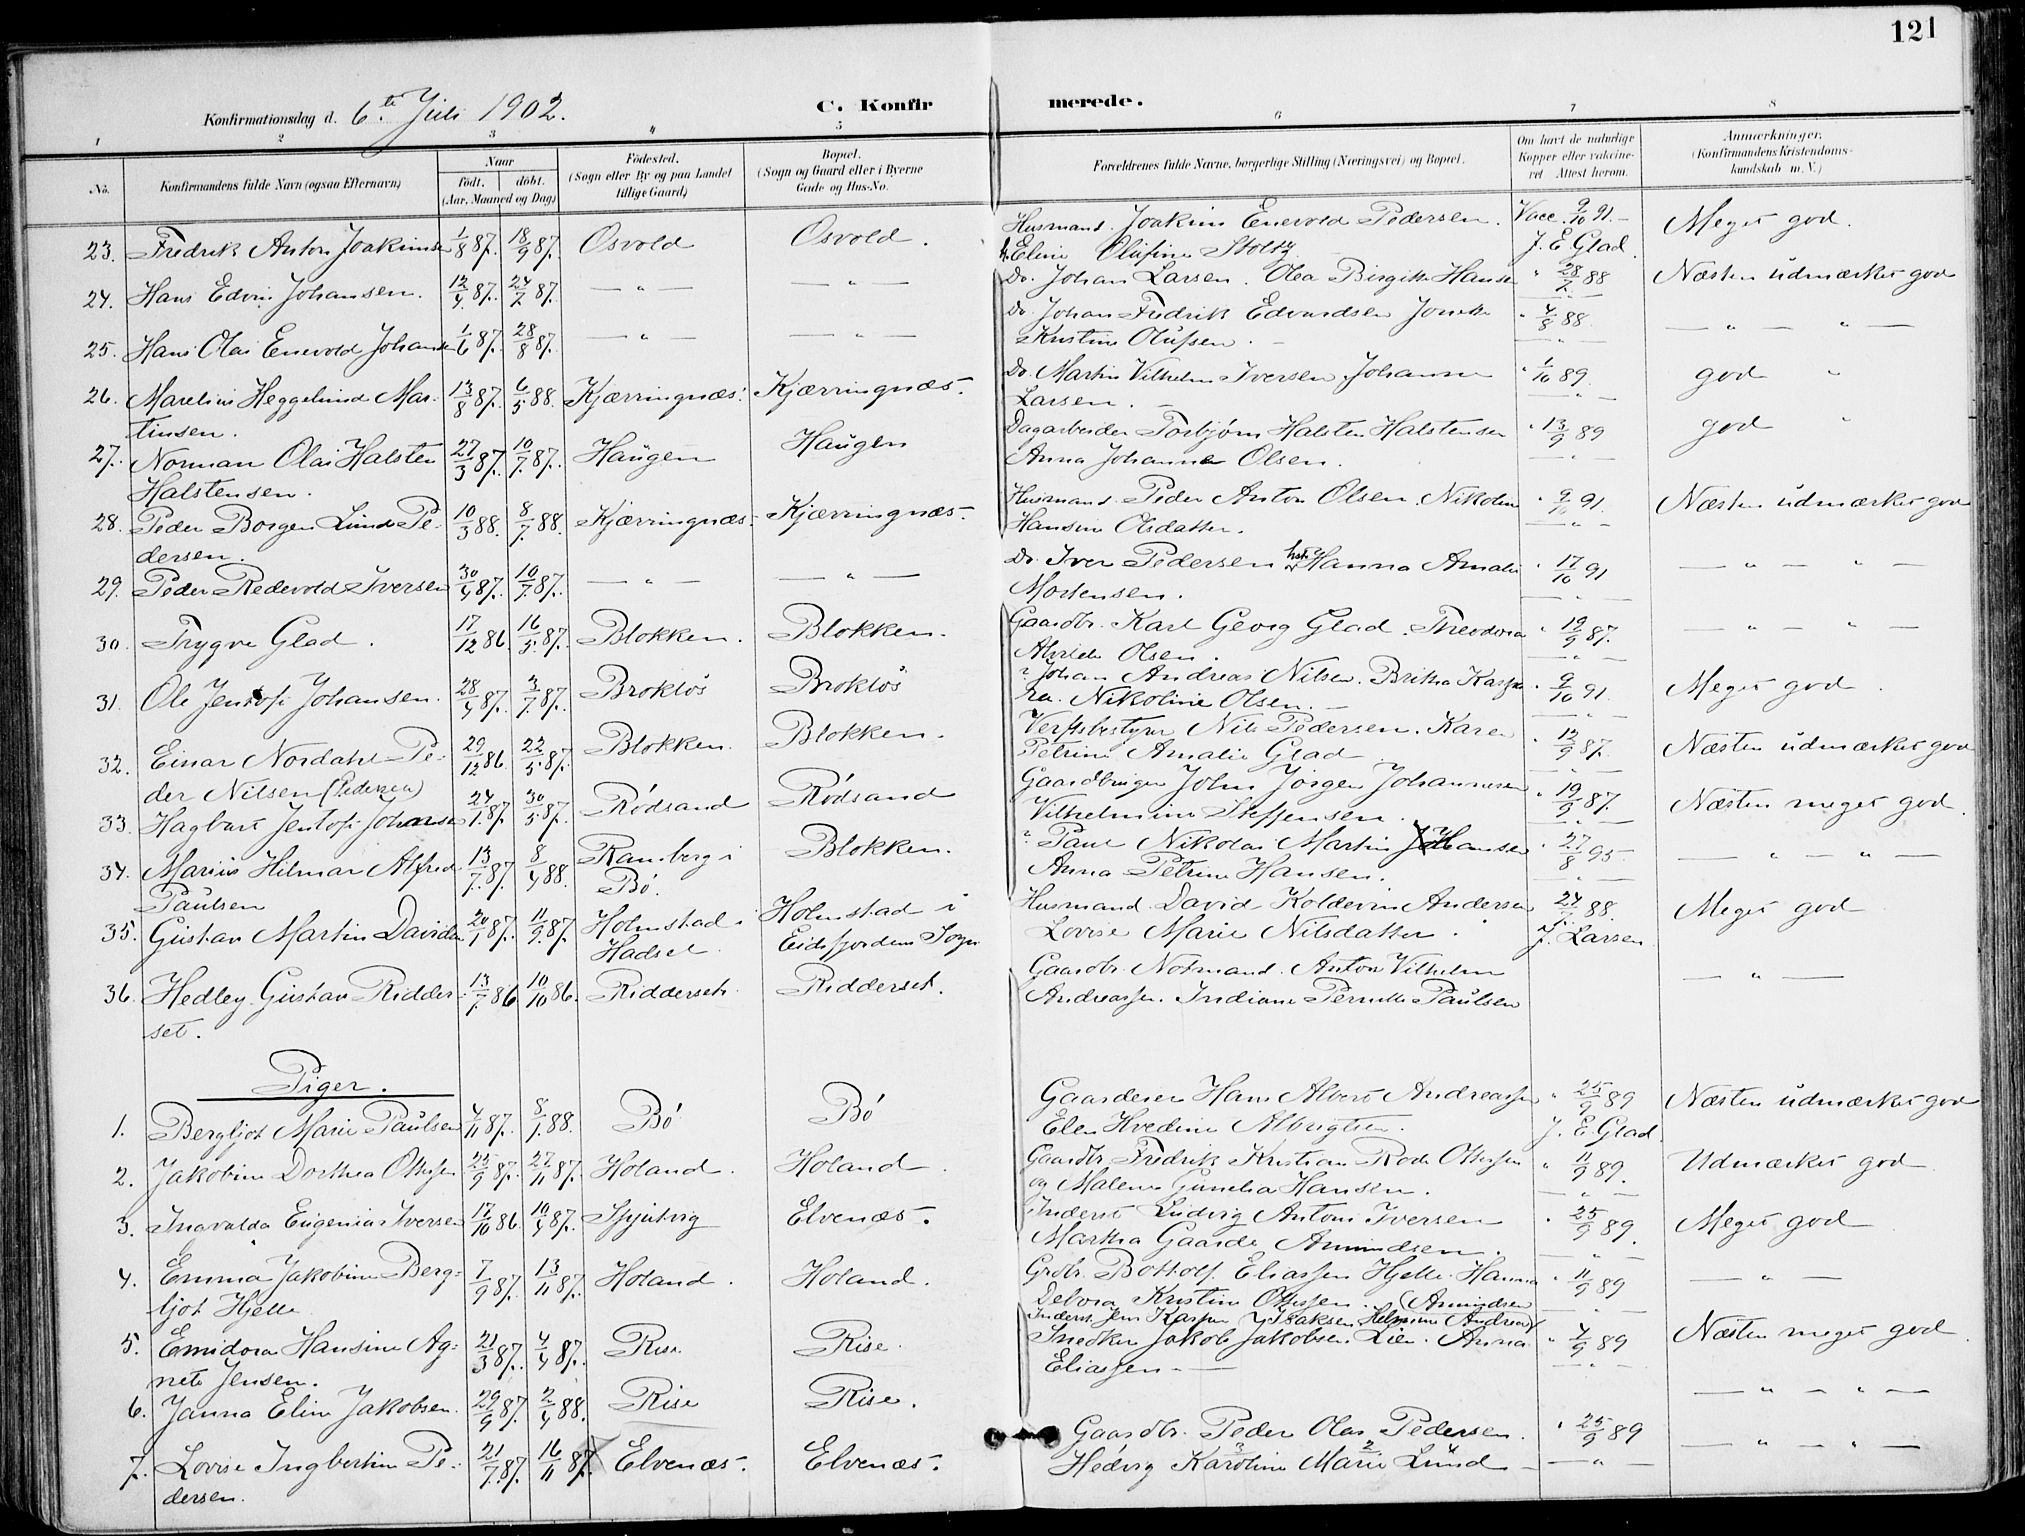 121
Konfirmationsdag d. 6te Juli 1902. C. Konfirmerede.
1 2 3 4 5 6 7 8
No. Konfirmandens fulde Navn (ogsaa Efternavn) Naar født. døbt. (Aar, Maaned og Dag) Fødested. (Sogn eller By og paa Landet tillige Gaard) Bopæl. (Sogn og Gaard eller i Byerne Gade og Hus-No. Forældrenes fulde Navne, borgerlige Stilling (Næringsvei) og Bopæl. Om havt de naturlige Kopper eller vakcineret Attest herom. Anmærkninger. (Konfirmandens Kristendomskundskab m. V.)
23. Fredrik Anton Joakimsen 1/8 87. 18/9 87. Osvold Osvold. Husmand Joakim Enevold Pedersen. Vacc. 9/10 91. Meget god.
Eline Olufine Stoltz J. E. Glad.
24. Hans Edvin Johansen. 12/4 87. 24/7 87. — " — — " — Do. Johan Larsen. Olea Birgitte Hansen " 28/7 88 Næsten udmærket god
25. Hans Olai Enevold Johansen 1/6 87. 28/8 87. — " — — " — Do. Johan Fredrik Edvardsen " 4/8 88. — " — " —
Kristine Olufsen. — " —
26. Marelius Heggelund Mar- 13/8 87. 6/5 88. Kjærringnæs. Kjærringnæs. Do. Martin Vilhelm Iversen. Johanna " 1/10 89. god "
tinsen. Larsen. — " —
27. Norman Olai Halsten 27/3 87. 10/7 87. Haugen Haugen Dagarbeider Torbjørn Halsten Halstensen " 13/9 89 god "
Halstensen. Anna Johanna Olsen. — " —
28. Peder Borgen Lund Pe- 10/3 88. 8/7 88. Kjærringnæs. Kjærringnæs. Husmand Peder Anton Olsen. Nikoline " 9/10 91. Næsten udmærket god
dersen. Hansine Olsdatter. — " —
29. Peder Redevold Iversen 30/4 87. 10/7 87. — " — — " — Do. Iver Pedersen Hanna Amalie " 17/10 91 — " — " —
Mortensen. — " —
30. Trygve Glad. 17/12 86. 16/5 87. Blokken. Blokken. Gaardbr. Karl Georg Glad. Theodora " 19/9 87. — " — " —
Olsen. — " —
31. Ole Jentoft Johansen. 28/4 87. 3/7 87. Brokløs Brokløs " Johan Andreas Nilsen. Britha Kaspa- " 9/10 91. Meget god.
ra Nikoline Olsen. — " —
32. Einar Nordahl Pe- 29/12 86. 22/5 87. Blokken. Blokken. Verftsbestyrer Nils Pedersen. Karen " 12/9 87. Næsten udmærket god
der Nilsen (Pedersen) Petrine Amalie Glad — " —
33. Hagbart Jentoft Johansen 24/1 87. 30/5 87. Rødsand Rødsand Gaardbruger John Jørgen Johannesen " 19/9 87. Næsten meget god.
Vilhelmine Steffensen. — " —
34. Marius Hilmar Alfred 13/7 87. 8/4 88. Ramberg i Blokken. " Paul Nikolai Martin Hansen " 27/8 95. — " — " —
Paulsen Bø. Anna Petrine Hansen. — " —
35. Gustav Martin Davidsen 20/1 87. 11/9 87. Holmstad i Holmstad i Husmand David Koldevin Andersen 24/7 88. Meget god
Hadsel. Eidsfjordens Sogn Lovise Marie Nilsdatter. J. Larsen.
36. Hedley Gustav Ridder- 13/7 86 10/10 86. Ridderset. Ridderset. Gaardbr. Notmand. Anton Vilhelm — " —
set. Andreassen. Indiane Pernille Paulsen
Piger.
1. Bergljot Marie Paulsen 4/11 87. 8/1 88. Bø Bø Gaardeier Hans Albert Andreassen " 25/9 89 Næsten udmærket god
Elen Hvedine Albrigtsen. J. E. Glad.
2. Jakobine Dorthea Ottesen 25/9 87. 27/11 87. Holand. Holand. Gaardbr. Fredrik Kristian Rode Ottesen " 11/9 89. Udmærket god
og Malene Gunelia Hansen. — " —
3. Ingvalda Eugenia Iversen 17/10 86. 10/4 87. Spjutvig Elvenæs. Inderst Ludvig Antoni Iversen " 25/9 89. Meget god
Martha Gaarde Amundsen. — " —
4. Emma Jakobine Berg- 7/9 87. 13/11 87. Holand. Holand. Grdbr. Bottolf Eliassen Hjelle. Hanna " 11/9 89 — " —
ljot Hjelle Debora Kristine Ottesen. (Amundsen — " —
5. Emidora Hansine Ag- 21/3 87. 4/4 87. Rise. Rise. Inderst. Jens Kaspar Isaksen Helmine Andrea " 4/9 89 Næsten meget god.
nete Jensen. Snedker Jakob Jakobsen Lien. Anna
Eliassen — " —
6. Janna Elin Jakobsen. 29/9 87. 2/4 88. Rise Rise. — " — " —
7. Lovise Ingbertine Pe- 21/7 87. 16/11 87. Elvenæs. Elvenæs. Gaardbr. Peder Olai Pedersen. " 25/9 89 — " — " —
dersen. Hedvig Karoline Marie Lund — " —